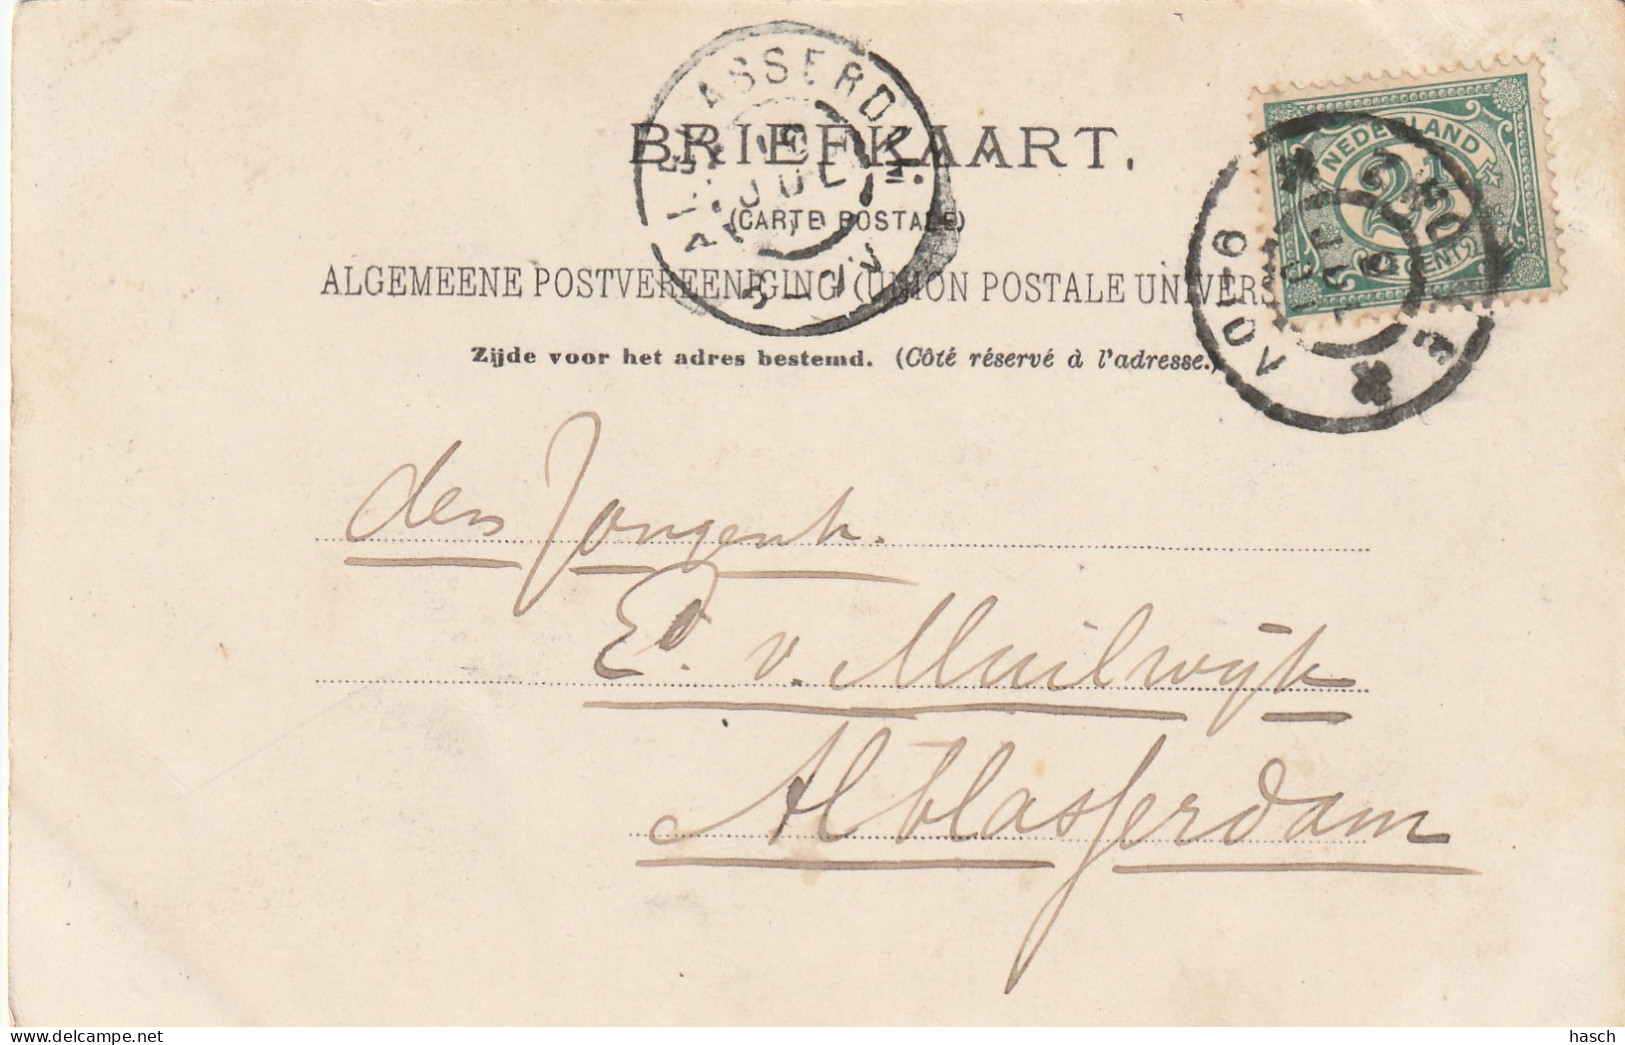 BRIEFKAART.
(CARTE POSTALE)
ALGEMEENE POSTVEREENIGING (UNION POSTALE UNIVERS
Zijde voor het adres bestemd. (Côté réservé à l'adresse.)
ALBLASSERDAM.
JUL
NEDERLAND
2½
CENT
9-10V
den Jongenh.
Ed. v. Muilwijk
Alblasserdam
© delcampe.net
hasch